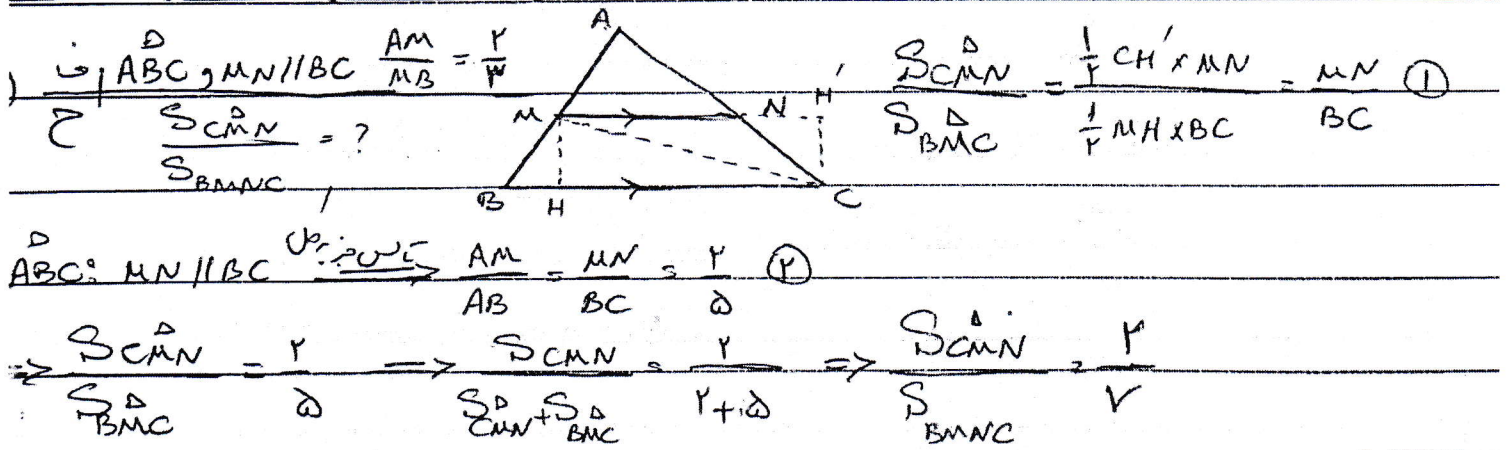 ف | ABC و MN//BC AM/MB = ۲/۳
ح S CMN / S BMNC = ?
A
M N H'
B H C
S CMN / S BMC = (۱/۲ CH' × MN) / (۱/۲ MH × BC) = MN/BC ①
ABC: MN//BC تالس جزء به کل => AM/AB = MN/BC = ۲/۵ ②
=> S CMN / S BMC = ۲/۵ => S CMN / (S CMN + S BMC) = ۲/(۲+۵) => S CMN / S BMNC = ۲/۷